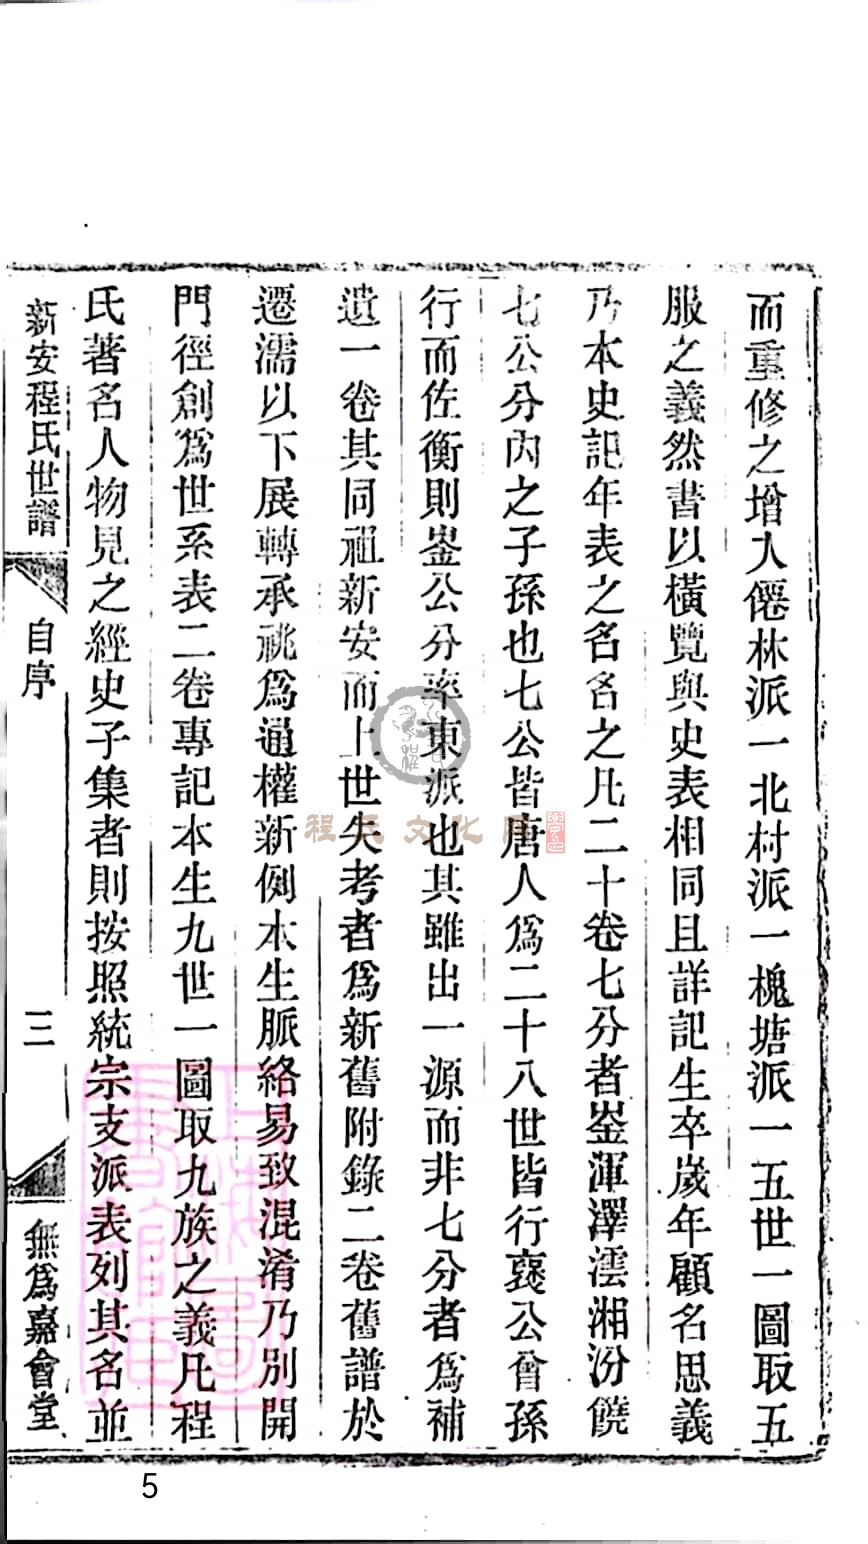 而重修之增入僊林派一北村派一槐塘派一五世一圖取五
服之義然書以橫覽與史表相同且詳記生卒歲年顧名思義
乃本史記年表之名名之凡二十卷七分者崟渾澤澐湘汾饒
七公分內之子孫也七公皆唐人爲二十八世皆行襃公曾孫
行而佐衡則崟公分率東派也其雖出一源而非七分者爲補
遺一卷其同祖新安而上世失考者爲新舊附錄二卷舊譜於
遷濡以下展轉承祧爲通權新例本生脈絡易致混淆乃別開
門徑創爲世系表二卷專記本生九世一圖取九族之義凡程
氏著名人物見之經史子集者則按照統宗支派表列其名並
新安程氏世譜
自序
三
無爲嘉會堂
程氏文化
5